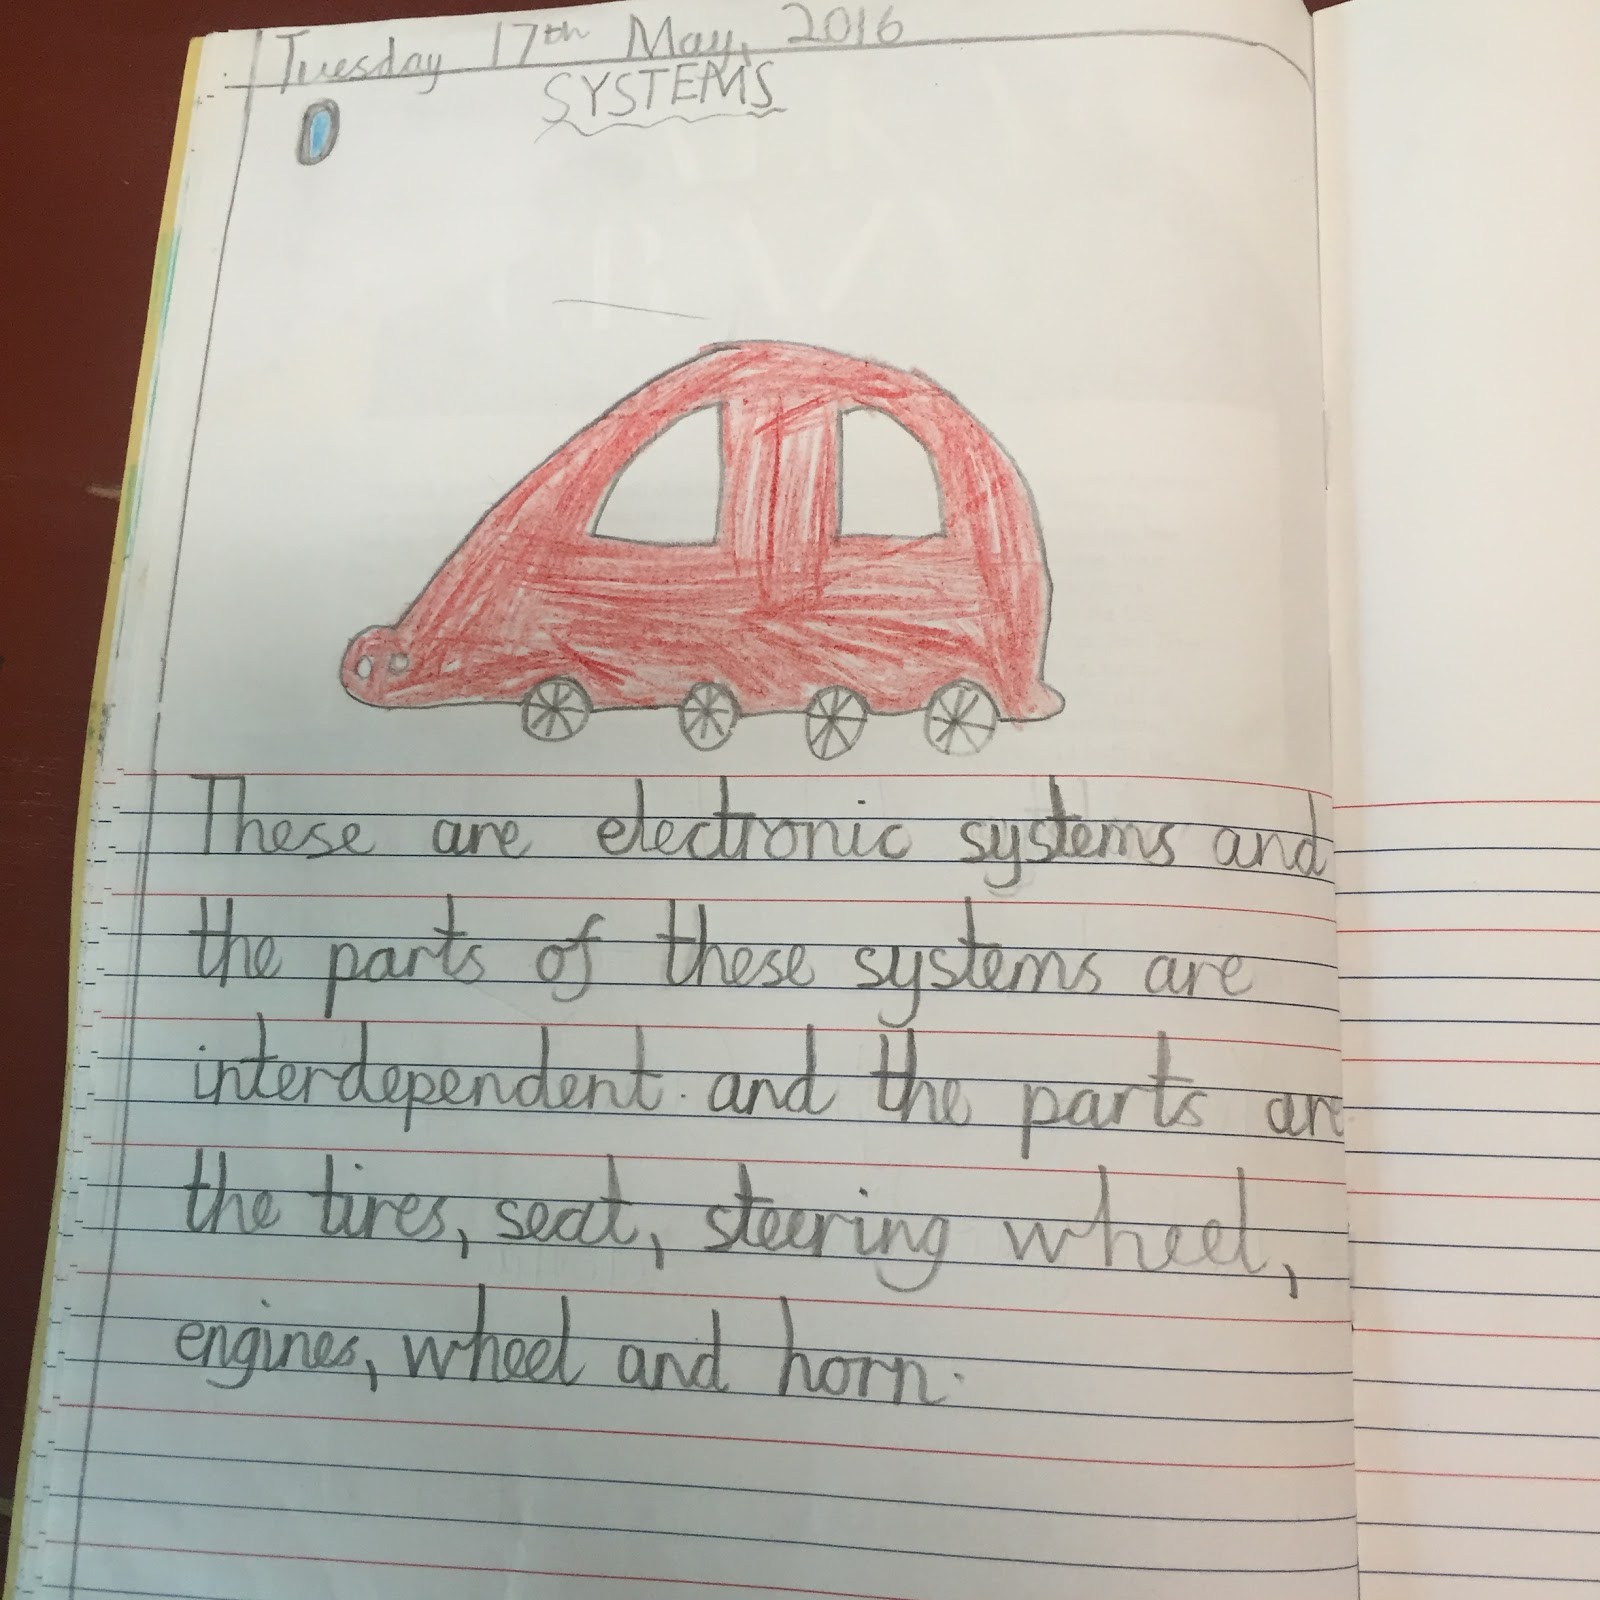 Tuesday 17th May, 2016
SYSTEMS
These are electronic systems and
the parts of these systems are
interdependent. and the parts are
the tires, seat, steering wheel,
engines, wheel and horn.